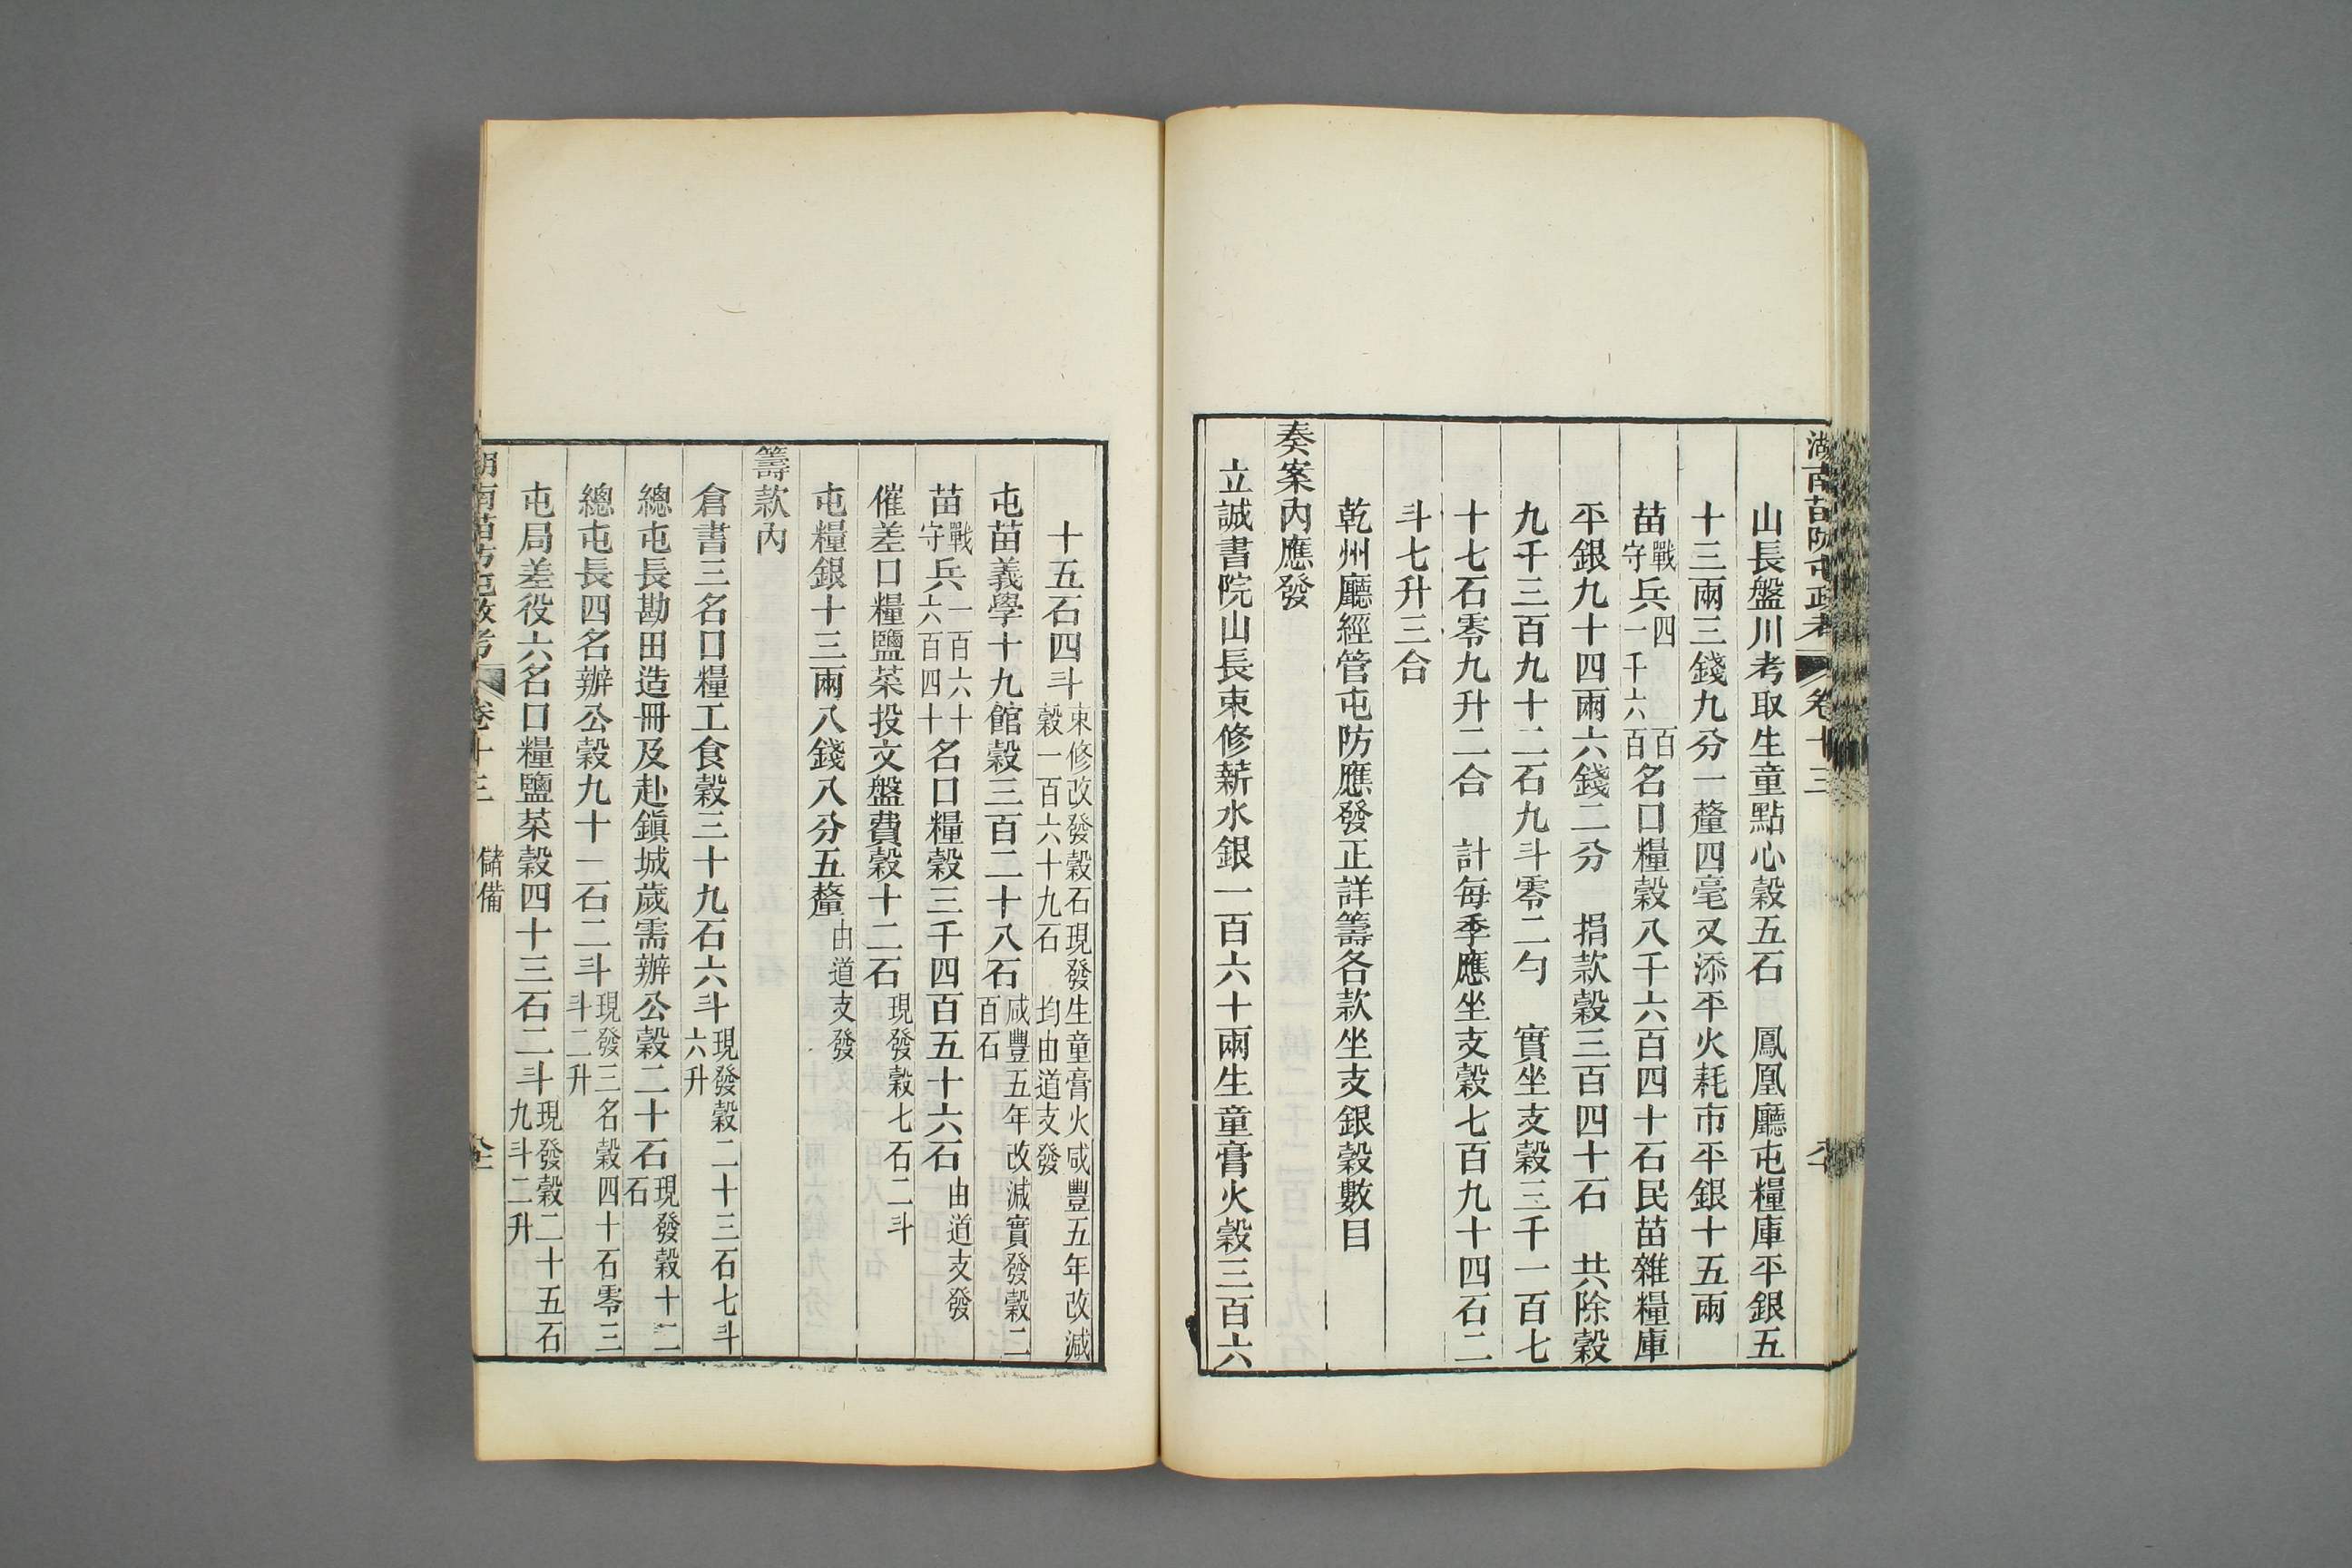 湖南苗防屯政考 卷十三
山長盤川考取生童點心穀五石　鳳凰廳屯糧庫平銀五
十三兩三錢九分一釐四毫又添平火耗市平銀十五兩
苗戰守兵四百一千六百名口糧穀八千六百四十石民苗雜糧庫
平銀九十四兩六錢二分　捐款穀三百四十石　共除穀
九千三百九十二石九斗零二勺　實坐支穀三千一百七
十七石零九升二合　計每季應坐支穀七百九十四石二
斗七升三合
乾州廳經管屯防應發正詳籌各款坐支銀穀數目
奏案內應發
立誠書院山長束修薪水銀一百六十兩生童膏火穀三百六
十五石四斗束修改發穀石現發生童膏火咸豐五年改減穀一百六十九石　均由道支發
屯苗義學十九館穀三百二十八石咸豐五年改減實發穀二百石
苗戰守兵一百六十六百四十名口糧穀三千四百五十六石由道支發
催差口糧鹽菜投文盤費穀十二石現發穀七石二斗
屯糧銀十三兩八錢八分五釐由道支發
籌款內
倉書三名口糧工食穀三十九石六斗現發穀二十三石七斗六升
總屯長勘田造冊及赴鎮城歲需辦公穀二十石現發穀十二石
總屯長四名辦公穀九十一石二斗現發三名穀四十石零三斗二升
屯局差役六名口糧鹽菜穀四十三石二斗現發穀二十五石九斗二升
湖南苗防屯政考 卷十三 儲備